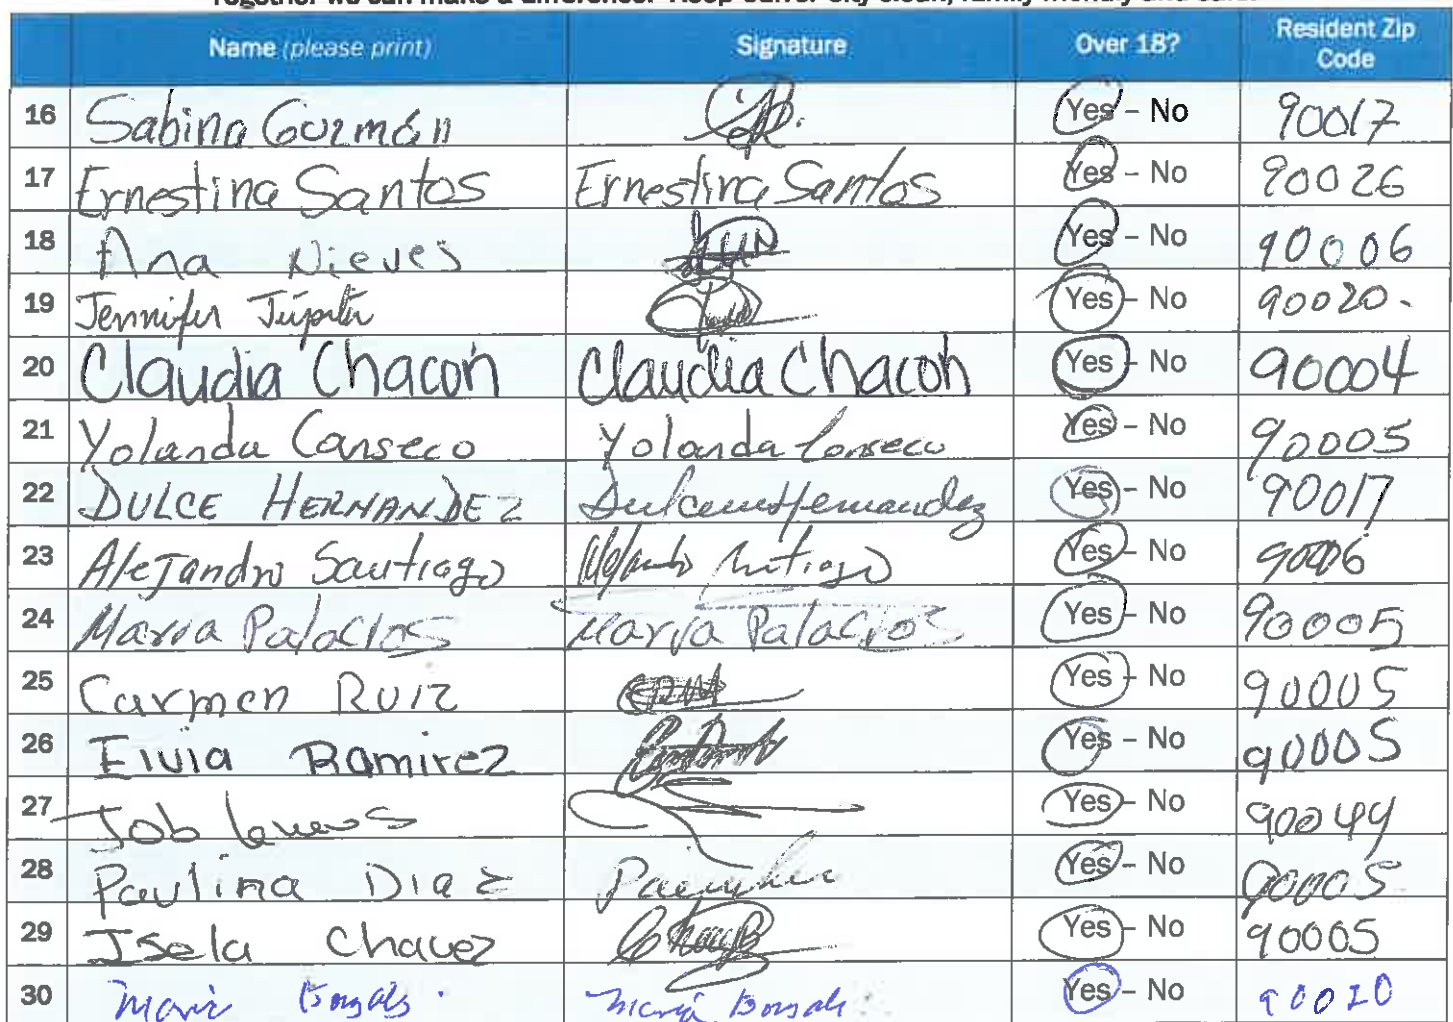 Together we can make a difference! Keep Culver City clean, family friendly and safe.
Name (please print) Signature Over 18? Resident Zip Code
16 Sabina Guzmán Yes - No 90017
17 Ernestina Santos Ernestina Santos Yes - No 90026
18 Ana Nieves Yes - No 90006
19 Jennifer Júpiter Yes - No 90020.
20 Claudia Chacon Claudia Chacon Yes - No 90004
21 Yolanda Canseco Yolanda Canseco Yes - No 90005
22 DULCE HERNANDEZ Hernandez Yes - No 90017
23 Alejandro Santiago Alejandro Santiago Yes - No 9006
24 Maria Palacios Maria Palacios Yes - No 90005
25 Carmen Ruiz Yes - No 90005
26 Elvia Ramirez Yes - No 90005
27 Job Yes - No 90044
28 Paulina Diaz Yes - No 90005
29 Isela Chavez Yes - No 90005
30 Maria Maria Yes - No 90020